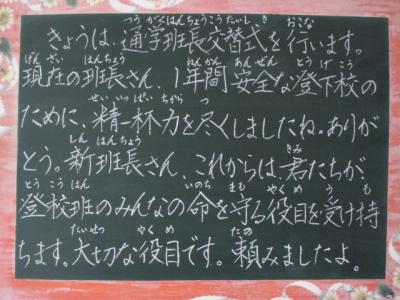 きょうは、通学班長交替式を行います。
現在の班長さん、1年間安全な登下校の
ために、精一杯力を尽くしましたね。ありが
とう。新班長さん、これからは、君たちが
登校班のみんなの命を守る役目を受け持
ちます。大切な役目です。頼みましたよ。